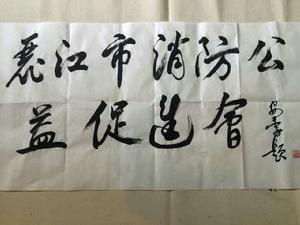 麗江市消防公
益促進會